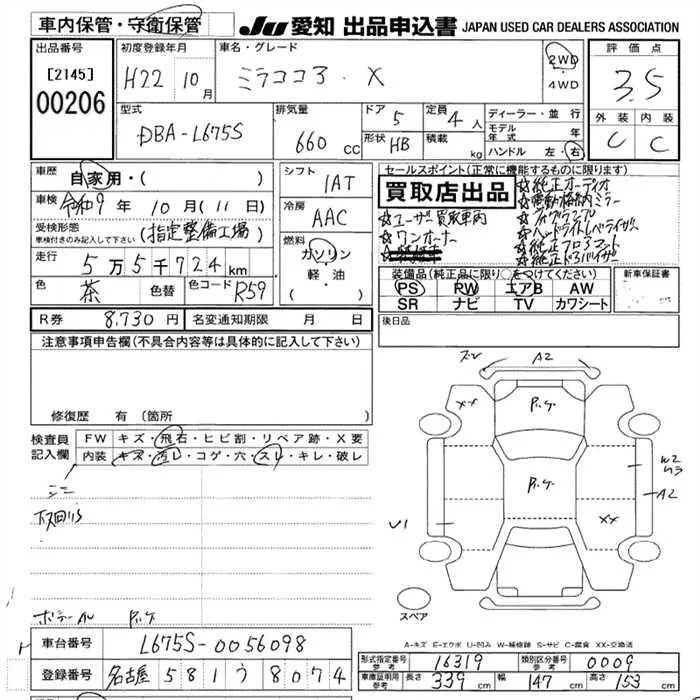 車内保管・守衛保管
JU 愛知 出品申込書 JAPAN USED CAR DEALERS ASSOCIATION
出品番号
[2145]
00206
初度登録年月
H22 10月
車名・グレード
ミラココア X
2WD
4WD
評価点
3.5
外装 内装
C C
型式
DBA-L675S
排気量
660 cc
ドア 5
形状 HB
定員 4人
積載 kg
ディーラー・並行
モデル年式 年
ハンドル 左・右
車歴
自家用・( )
車検
令和9年 10月(11日)
受検形態
車検付きのみ記入して下さい
(指定整備工場)
走行
5万5千724km
色 茶 色替 色コード R59
シフト
IAT
冷房
AAC
燃料
ガソリン
軽・油
( )
セールスポイント(正常に機能するものに限ります)
買取店出品
☆ユーザー買取車両
☆ワンオーナー
☆純正オーディオ
☆電動格納ミラー
☆フォグランプ
☆ヘッドライトレベライザー
☆純正フロアマット
☆純正ドアバイザー
装備品(純正品に限り○をつけてください)
PS PW エアB AW
SR ナビ TV カワシート
新車保証書
R券 8,730円 名変通知期限 月 日
後日品
注意事項申告欄(不具合内容等は具体的に記入して下さい)
修復歴 有(箇所
検査員記入欄
FW キズ・飛石・ヒビ割・リペア跡・X要
内装 キズ・汚レ・コゲ・穴・スレ・キレ・破レ
下回りS
ボデーAU
A2
XX
W2
A2
XX
U1
スペア
A-キズ E-エクボ U-凹み W-補修跡 S-サビ C-腐食 XX-交換済
車台番号 L675S-0056098
登録番号 名古屋 581 う 8074
形式指定番号 参考 16319 類別区分番号 参考 0009
車庫証明用 参考 長さ 339cm 幅 147cm 高さ 153cm